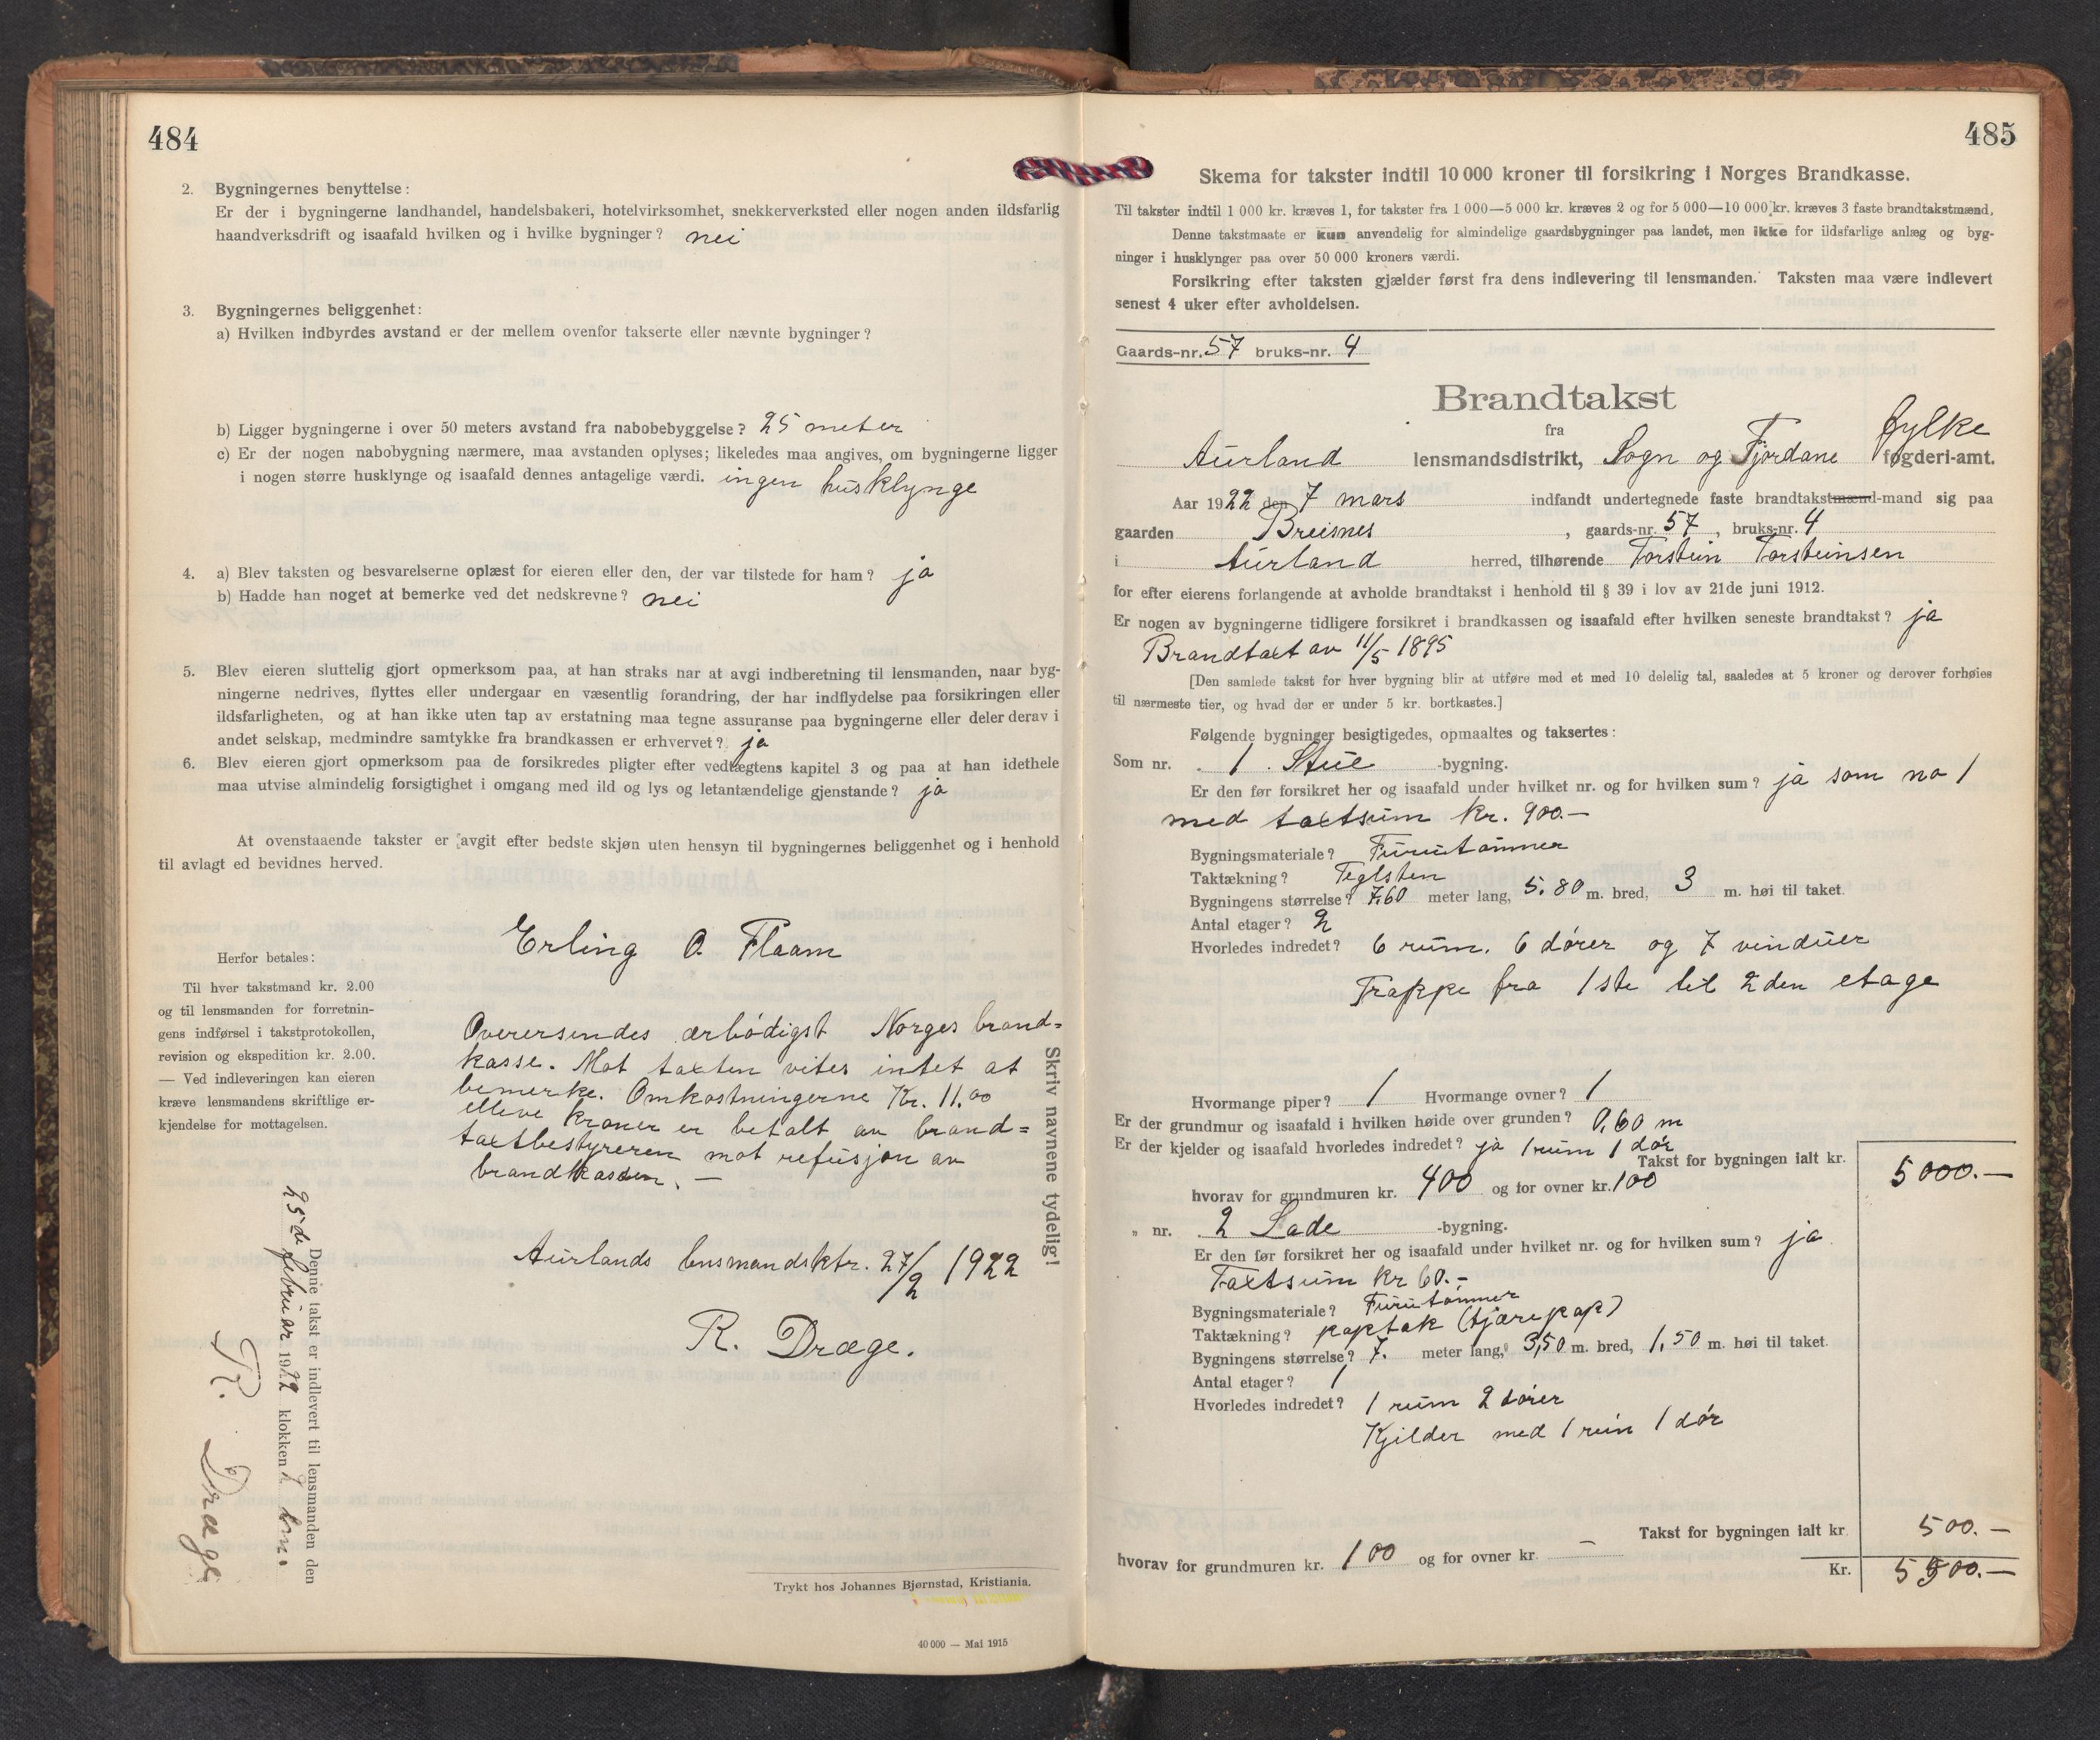 484
2. Bygningernes benyttelse:
Er der i bygningerne landhandel, handelsbakeri, hotelvirksomhet, snekkerverksted eller nogen anden ildsfarlig
haandverksdrift og isaafald hvilken og i hvilke bygninger? nei
3. Bygningernes beliggenhet:
a) Hvilken indbyrdes avstand er der mellem ovenfor takserte eller nævnte bygninger?
b) Ligger bygningerne i over 50 meters avstand fra nabobebyggelse? 25 meter
c) Er der nogen nabobygning nærmere, maa avstanden oplyses; likeledes maa angives, om bygningerne ligger
i nogen større husklynge og isaafald dennes antagelige værdi. ingen husklynge
4. a) Blev taksten og besvarelserne oplæst for eieren eller den, der var tilstede for ham? ja
b) Hadde han noget at bemerke ved det nedskrevne? nei
5. Blev eieren sluttelig gjort opmerksom paa, at han straks nar at avgi indberetning til lensmanden, naar byg-
ningerne nedrives, flyttes eller undergaar en væsentlig forandring, der har indflydelse paa forsikringen eller
ildsfarligheten, og at han ikke uten tap av erstatning maa tegne assuranse paa bygningerne eller deler derav i
andet selskap, medmindre samtykke fra brandkassen er erhvervet? ja
6. Blev eieren gjort opmerksom paa de forsikredes pligter efter vedtægtens kapitel 3 og paa at han idethele
maa utvise almindelig forsigtighet i omgang med ild og lys og letantændelige gjenstande? ja
At ovenstaaende takster er avgit efter bedste skjøn uten hensyn til bygningernes beliggenhet og i henhold
til avlagt ed bevidnes herved.
Erling O. Flaam
Herfor betales:
Til hver takstmand kr. 2.00
og til lensmanden for forretnin-
gens indførsel i takstprotokollen,
revision og ekspedition kr. 2.00.
— Ved indleveringen kan eieren
kræve lensmandens skriftlige er-
kjendelse for mottagelsen.
Overersendes ærbødigst Norges brand=
kasse. Mot taxten vites intet at
bemerke. Omkostningerne Kr. 11.00
elleve kroner er betalt av brand=
taxtbestyreren mot refusjon av
brandkassen. —
Aurlands lensmandsktr. 27/2 1922
R. Dræge.
Skriv navnene tydelig!
Denne takst er indlevert til lensmanden den
25de februar 1922 klokken em.
R. Dræge
Trykt hos Johannes Bjørnstad, Kristiania.
40 000 — Mai 1915
485
Skema for takster indtil 10 000 kroner til forsikring i Norges Brandkasse.
Til takster indtil 1 000 kr. kræves 1, for takster fra 1 000—5 000 kr. kræves 2 og for 5 000—10 000 kr. kræves 3 faste brandtakstmænd.
Denne takstmaate er kun anvendelig for almindelige gaardsbygninger paa landet, men ikke for ildsfarlige anlæg og byg-
ninger i husklynger paa over 50 000 kroners værdi.
Forsikring efter taksten gjælder først fra dens indlevering til lensmanden. Taksten maa være indlevert
senest 4 uker efter avholdelsen.
Gaards-nr. 57 bruks-nr. 4
Brandtakst
fra
Aurland lensmandsdistrikt, Sogn og Fjordane Fylke fogderi-amt.
Aar 1922 den 7 mars indfandt undertegnede faste brandtakstmænd-mand sig paa
gaarden Breisnes, gaards-nr. 57, bruks-nr. 4
i Aurland herred, tilhørende Torstein Torsteinsen
for efter eierens forlangende at avholde brandtakst i henhold til § 39 i lov av 21de juni 1912.
Er nogen av bygningerne tidligere forsikret i brandkassen og isaafald efter hvilken seneste brandtakst? ja
Brandtaxt av 11/5 1895
[Den samlede takst for hver bygning blir at utføre med et med 10 delelig tal, saaledes at 5 kroner og derover forhøies
til nærmeste tier, og hvad der er under 5 kr. bortkastes.]
Følgende bygninger besigtigedes, opmaaltes og taksertes:
Som nr. 1. Stue -bygning.
Er den før forsikret her og isaafald under hvilket nr. og for hvilken sum? ja som no 1
med taxtsum kr. 900.—
Bygningsmateriale? Furutømmer
Taktækning? Teglsten
Bygningens størrelse? 7,60 meter lang, 5.80 m. bred, 3 m. høi til taket.
Antal etager? 2
Hvorledes indredet? 6 rum. 6 dører og 7 vinduer
Trappe fra 1ste til 2den etage
Hvormange piper? 1 Hvormange ovner? 1
Er der grundmur og isaafald i hvilken høide over grunden? 0,60 m
Er der kjelder og isaafald hvorledes indredet? ja 1 rum 1 dør
Takst for bygningen ialt kr. 5000.—
hvorav for grundmuren kr. 400 og for ovner kr. 100
„ nr. 2 Lade -bygning.
Er den før forsikret her og isaafald under hvilket nr. og for hvilken sum? ja
Taxtsum kr 60.-
Bygningsmateriale? Furutømmer
Taktækning? paptak (tjærepap)
Bygningens størrelse? 7. meter lang, 3,50 m. bred, 1,50 m. høi til taket.
Antal etager? 1
Hvorledes indredet? 1 rum 2 dører
Kjelder med 1 rum 1 dør
Takst for bygningen ialt kr 500.—
hvorav for grundmuren kr. 100 og for ovner kr. —
Kr. 5500.—